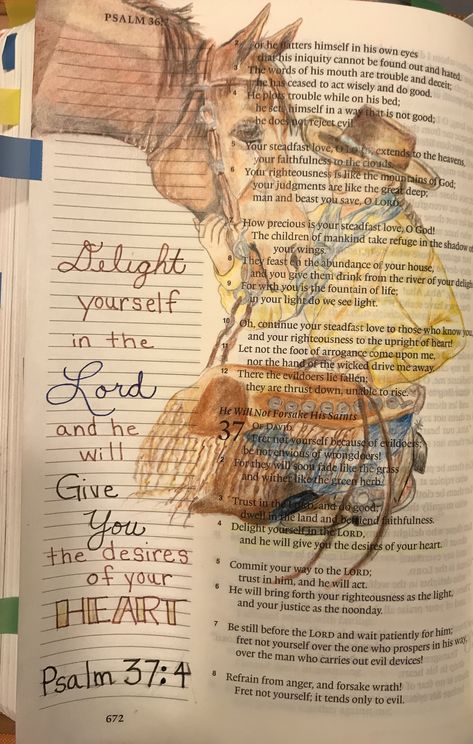 PSALM 36:2
2 For he flatters himself in his own eyes
that his iniquity cannot be found out and hated.
3 The words of his mouth are trouble and deceit;
he has ceased to act wisely and do good.
4 He plots trouble while on his bed;
he sets himself in a way that is not good;
he does not reject evil.
5 Your steadfast love, O LORD, extends to the heavens,
your faithfulness to the clouds.
6 Your righteousness is like the mountains of God;
your judgments are like the great deep;
man and beast you save, O LORD.
7 How precious is your steadfast love, O God!
The children of mankind take refuge in the shadow of
your wings.
8 They feast on the abundance of your house,
and you give them drink from the river of your delight
9 For with you is the fountain of life;
in your light do we see light.
10 Oh, continue your steadfast love to those who know you,
and your righteousness to the upright of heart!
11 Let not the foot of arrogance come upon me,
nor the hand of the wicked drive me away.
12 There the evildoers lie fallen;
they are thrust down, unable to rise.
He Will Not Forsake His Saints
37 OF DAVID.
Fret not yourself because of evildoers;
be not envious of wrongdoers!
2 For they will soon fade like the grass
and wither like the green herb.
3 Trust in the LORD, and do good;
dwell in the land and befriend faithfulness.
4 Delight yourself in the LORD,
and he will give you the desires of your heart.
5 Commit your way to the LORD;
trust in him, and he will act.
6 He will bring forth your righteousness as the light,
and your justice as the noonday.
7 Be still before the LORD and wait patiently for him;
fret not yourself over the one who prospers in his way,
over the man who carries out evil devices!
8 Refrain from anger, and forsake wrath!
Fret not yourself; it tends only to evil.
Delight
yourself
in the
Lord
and he
will
Give
You
the desires
of your
HEART
Psalm 37:4
672